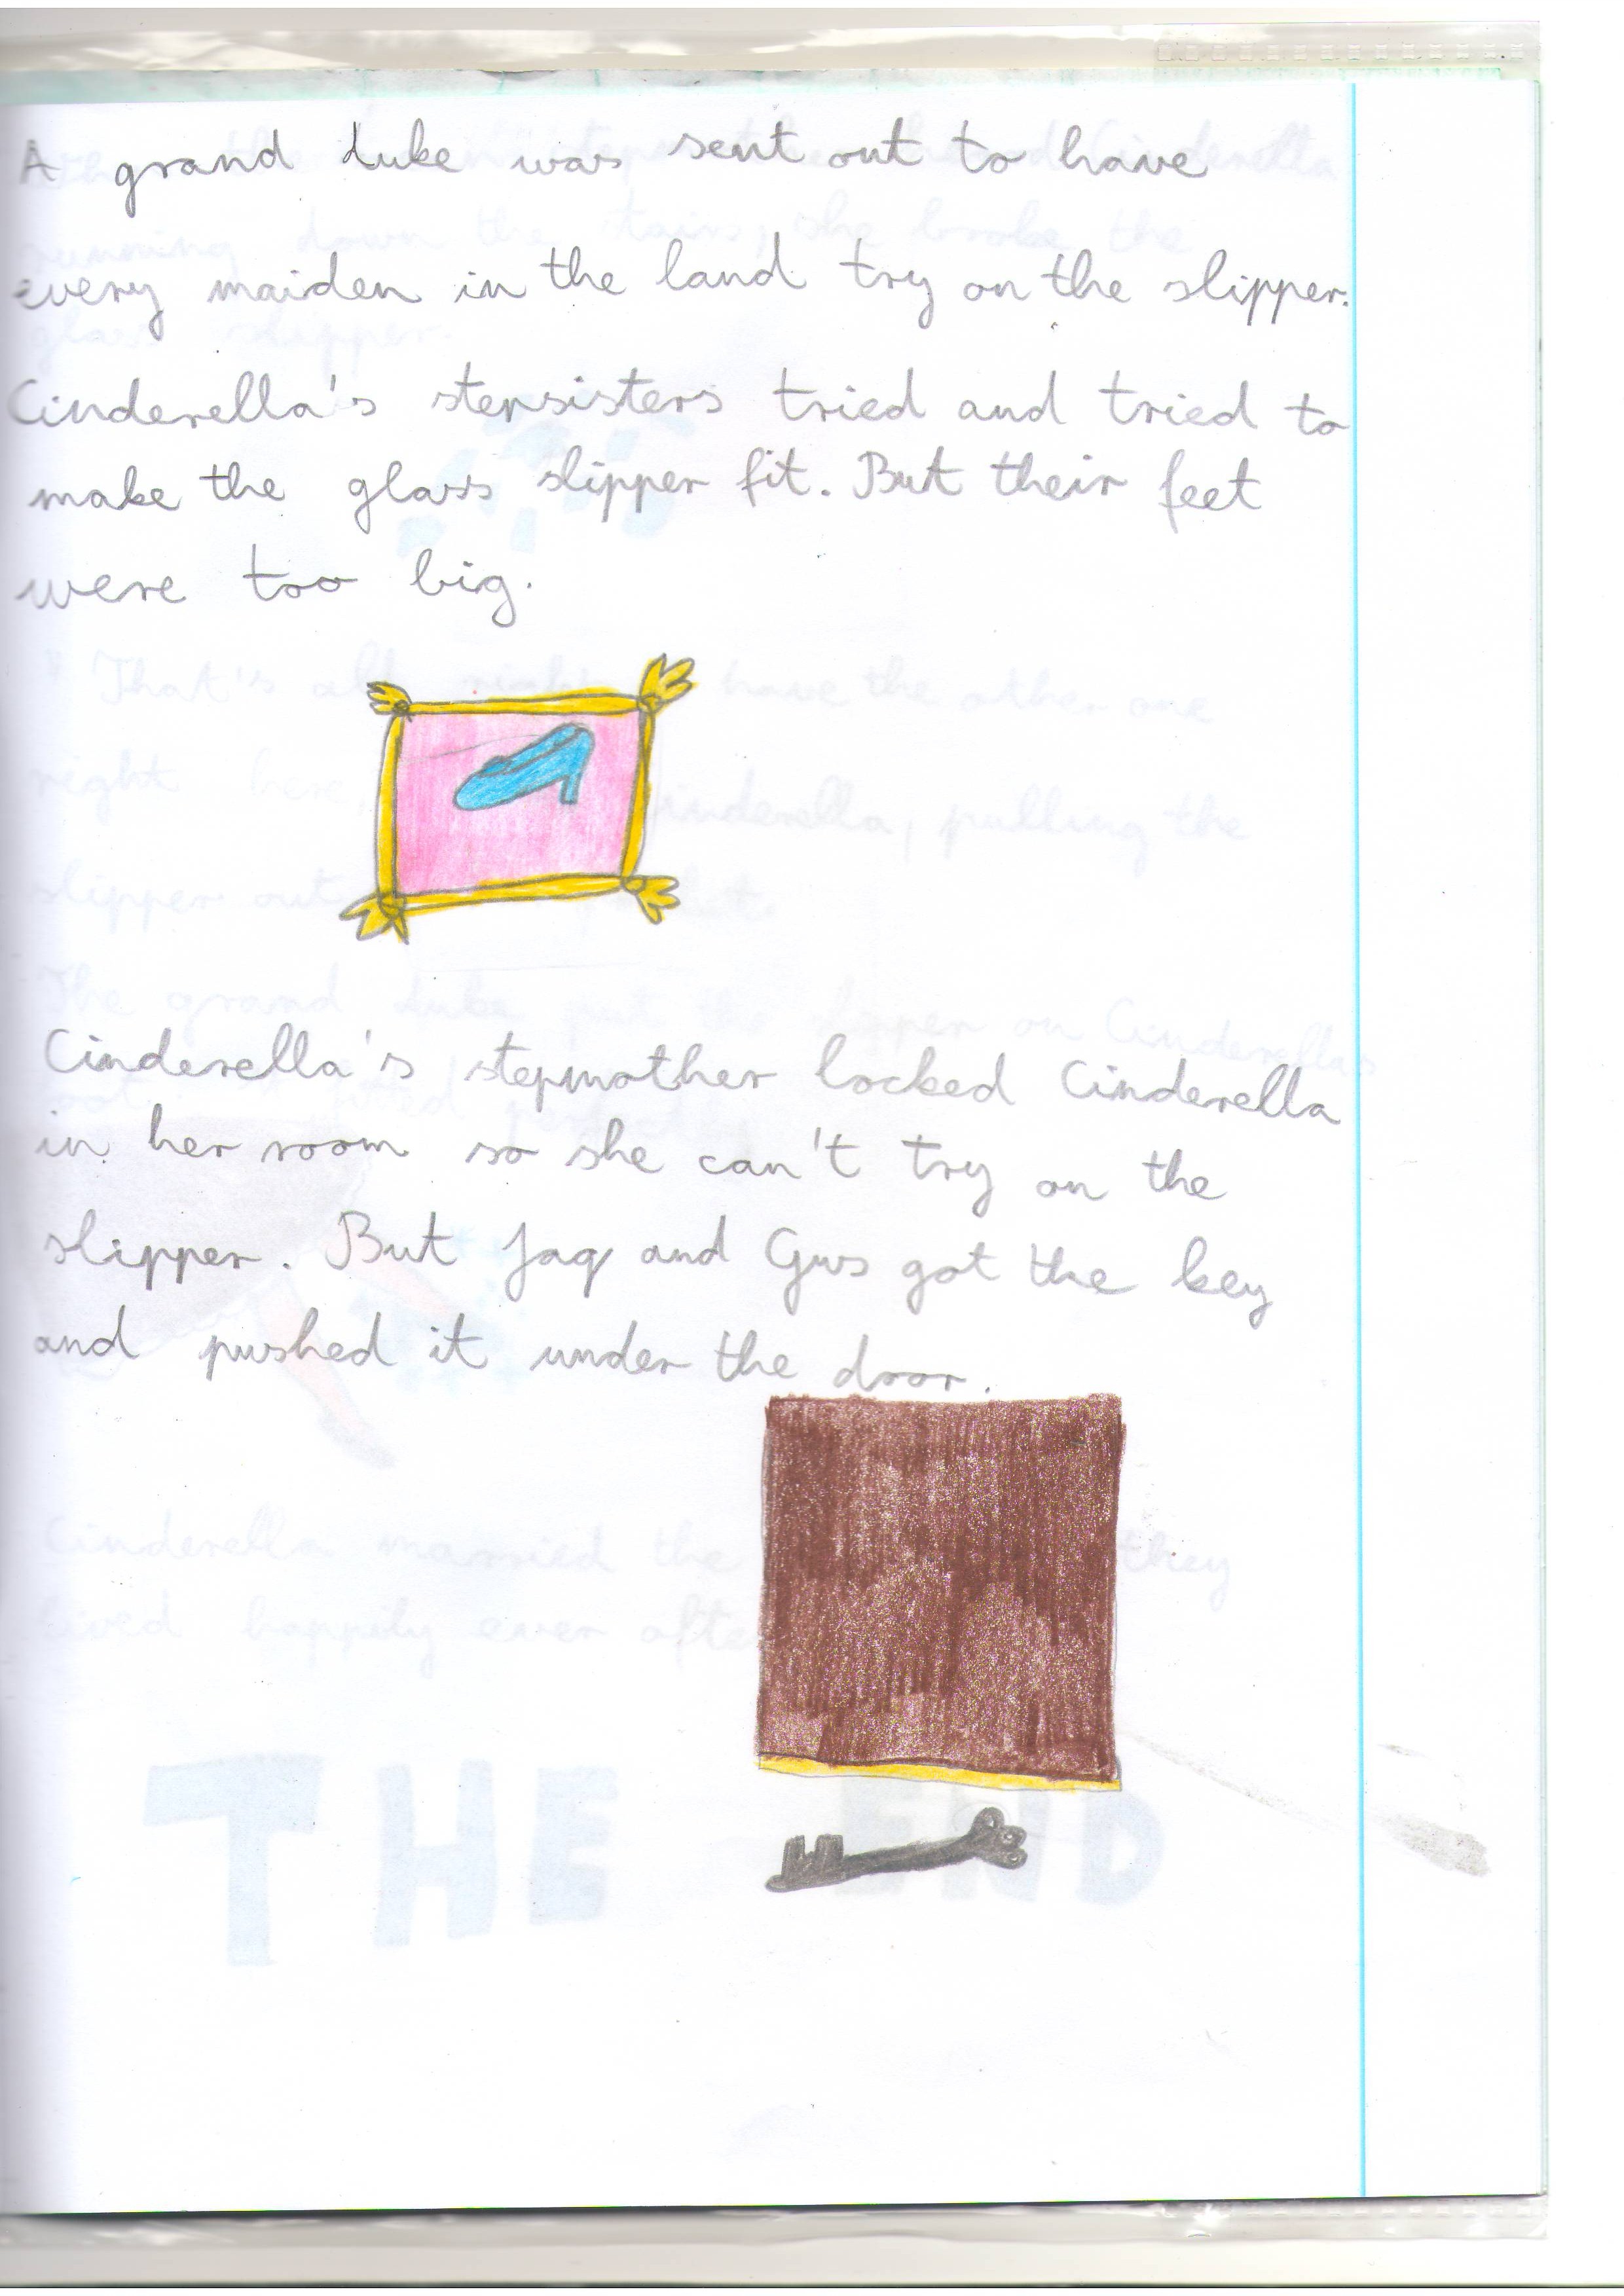 A grand duke was sent out to have
every maiden in the land try on the slipper.
Cinderella's stepsisters tried and tried to
make the glass slipper fit. But their feet
were too big.
Cinderella's stepmother locked Cinderella
in her room so she can't try on the
slipper. But Jaq and Gus got the key
and pushed it under the door.